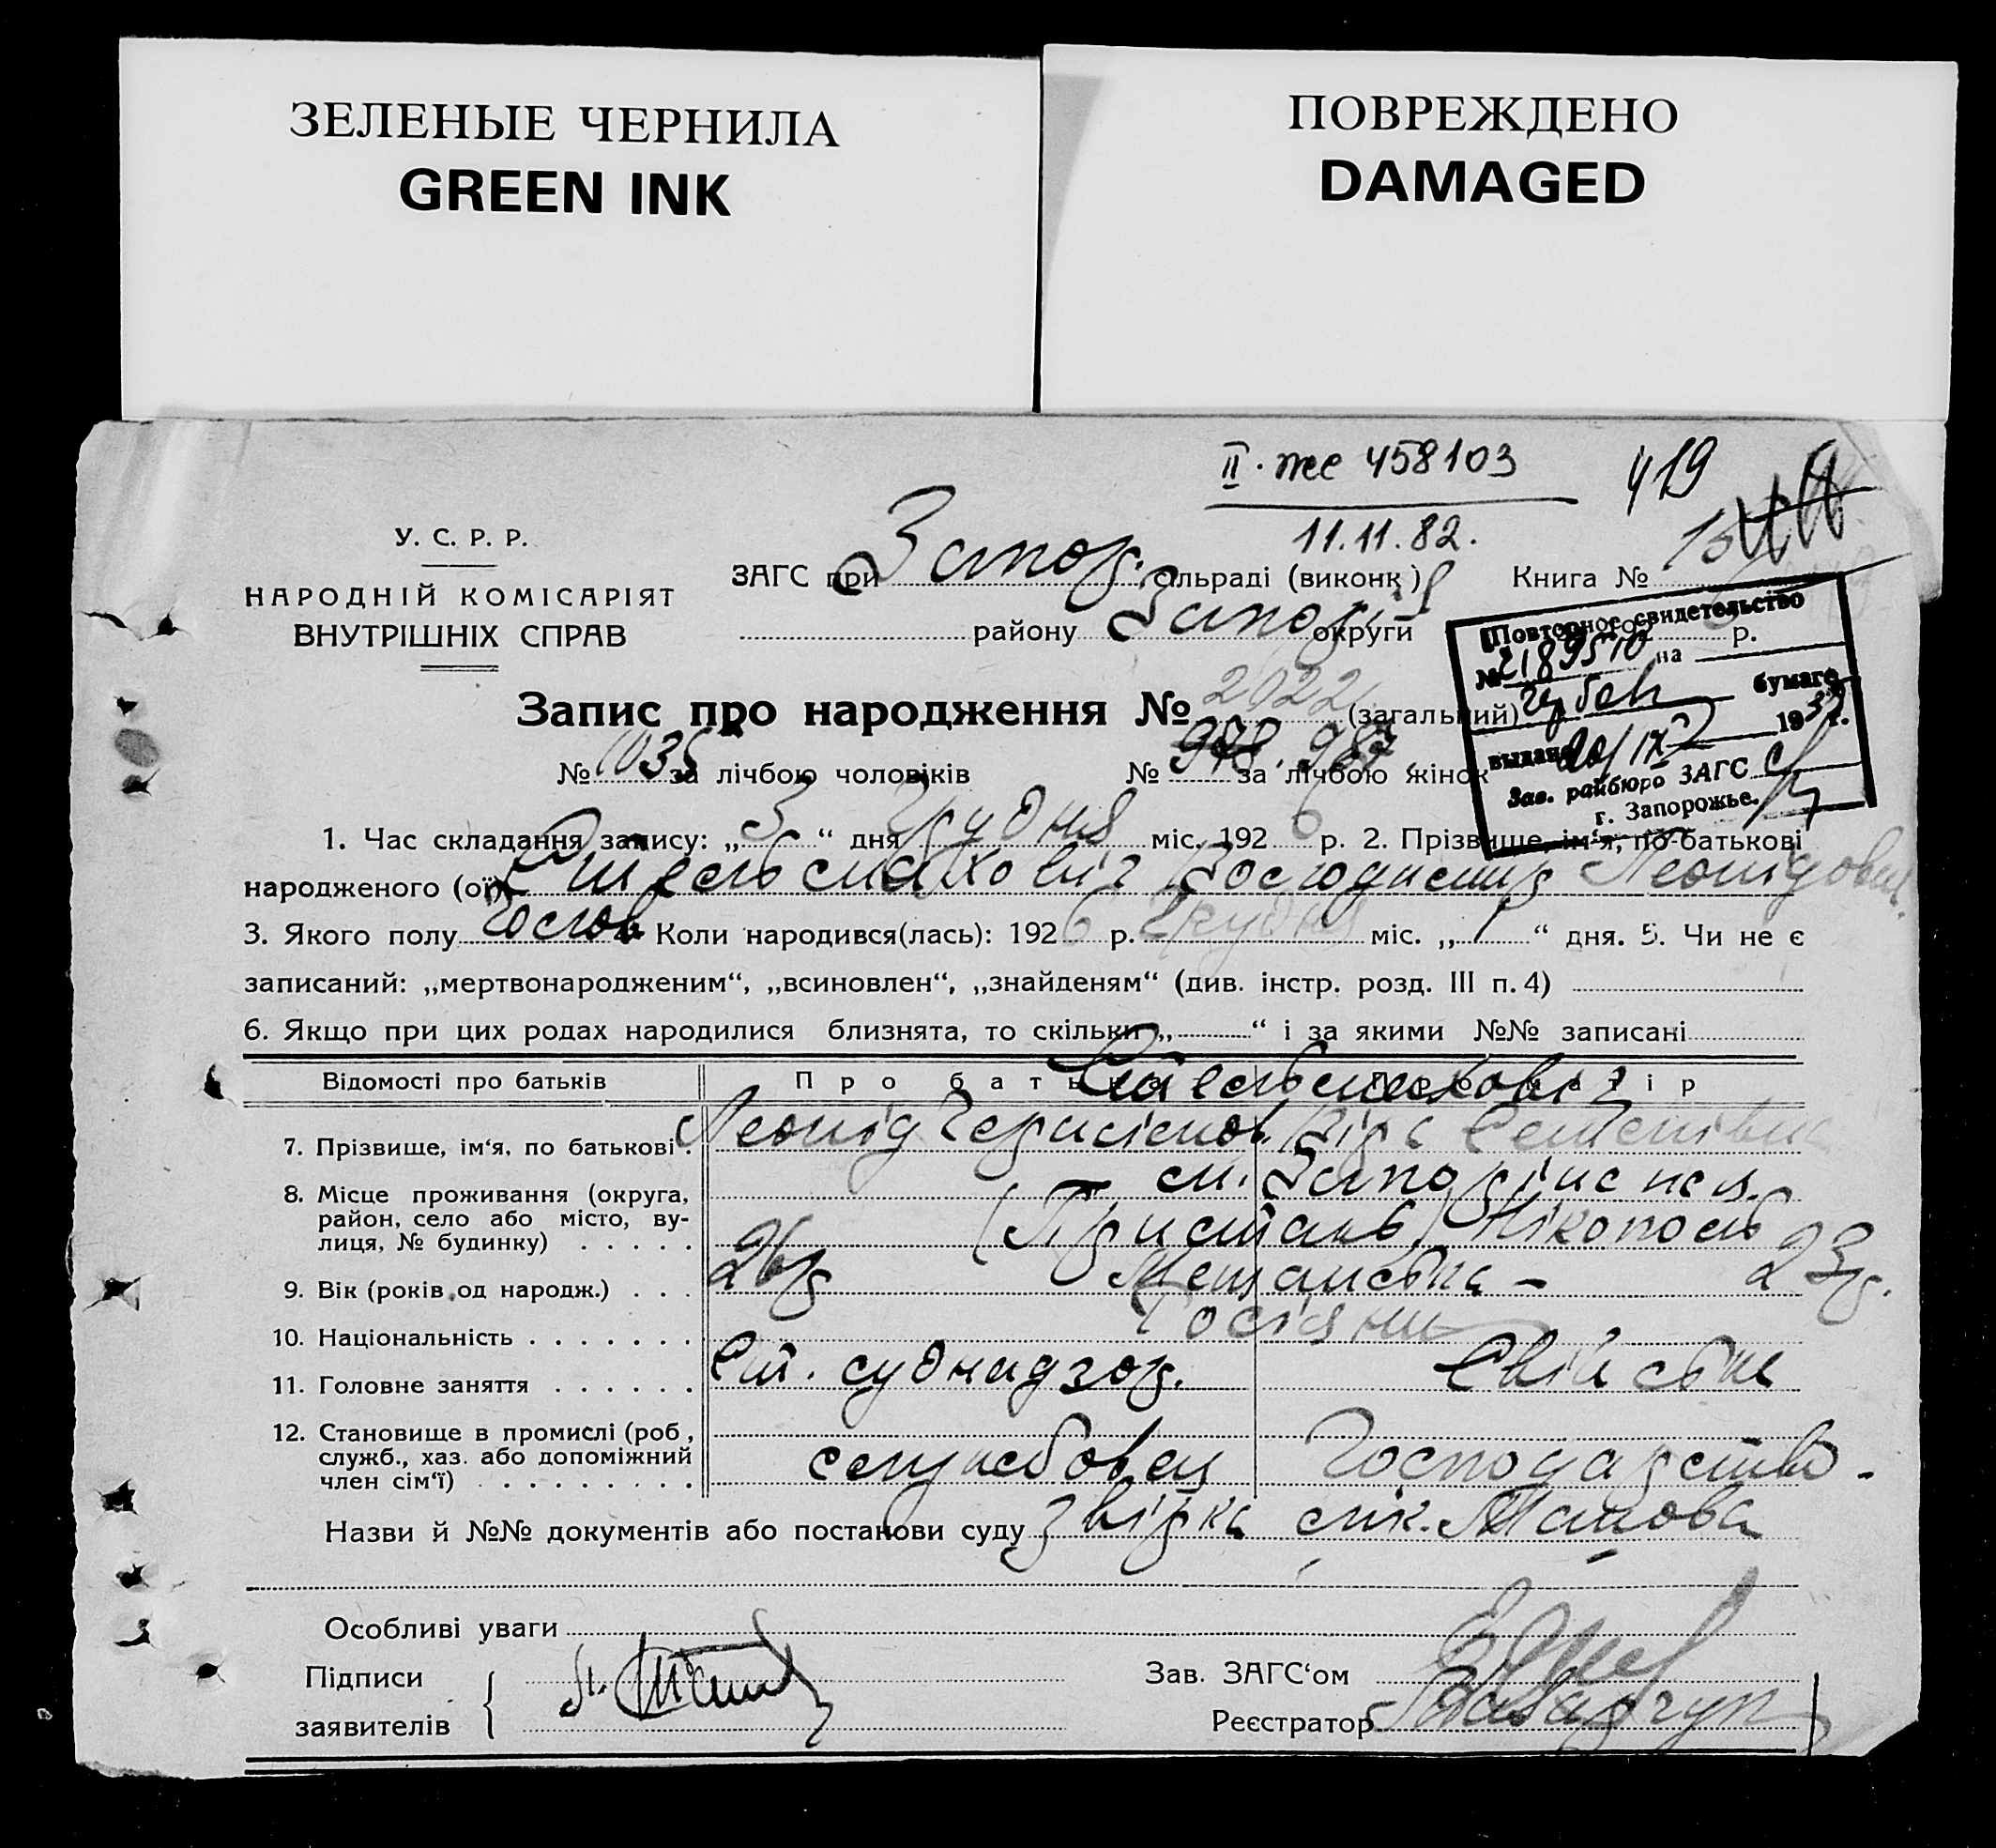 ЗЕЛЕНЫЕ ЧЕРНИЛА
GREEN INK
ПОВРЕЖДЕНО
DAMAGED
II. же 458103
419
11.11.82.
У. С. Р. Р.
НАРОДНІЙ КОМІСАРІЯТ
ВНУТРІШНІХ СПРАВ
ЗАГС при Запор. сільраді (виконк)
Книга №
району Запор. округи
Повторное свидетельство
№ 2189510 на р.
бумаге
выдано 20/IX 193 г.
Зав. райбюро ЗАГС
г. Запорожье.
Запис про народження № 2022 (загальний)
№ 1035 за лічбою чоловіків № 978. 987 за лічбою жінок
1. Час складання запису: „3“ дня Грудня міс. 1926 р. 2. Прізвище, ім‘я, по-батькові
народженого (ої) Леонідович
3. Якого полу Чолов Коли народився(лась): 1926 р. Грудня міс. „1“ дня. 5. Чи не є
записаний: „мертвонародженим“, „всиновлен“, „знайденям“ (див. інстр. розд. III п. 4)
6. Якщо при цих родах народилися близнята, то скільки „ “ і за якими №№ записані
Відомості про батьків Про батька Про матір
7. Прізвище, ім‘я, по батькові . Леонід Герасімов. Віра Семенівна
8. Місце проживання (округа,
район, село або місто, ву-
лиця, № будинку) . . . . .
м. Запоріжжя.
(Пристань) Нікополь
9. Вік (років од народж.) . . . 26 р 23 р.
10. Національність . . . . . . . Росіяни
11. Головне заняття . . . . . . Ст. суднадзор. Свійське
12. Становище в промислі (роб,
служб., хаз. або допоміжний
член сім‘ї) . . . . . . . . . службовец Господарство.
Назви й №№ документів або постанови суду звірка
Особливі уваги
Підписи
заявителів
Зав. ЗАГС‘ом
Реєстратор